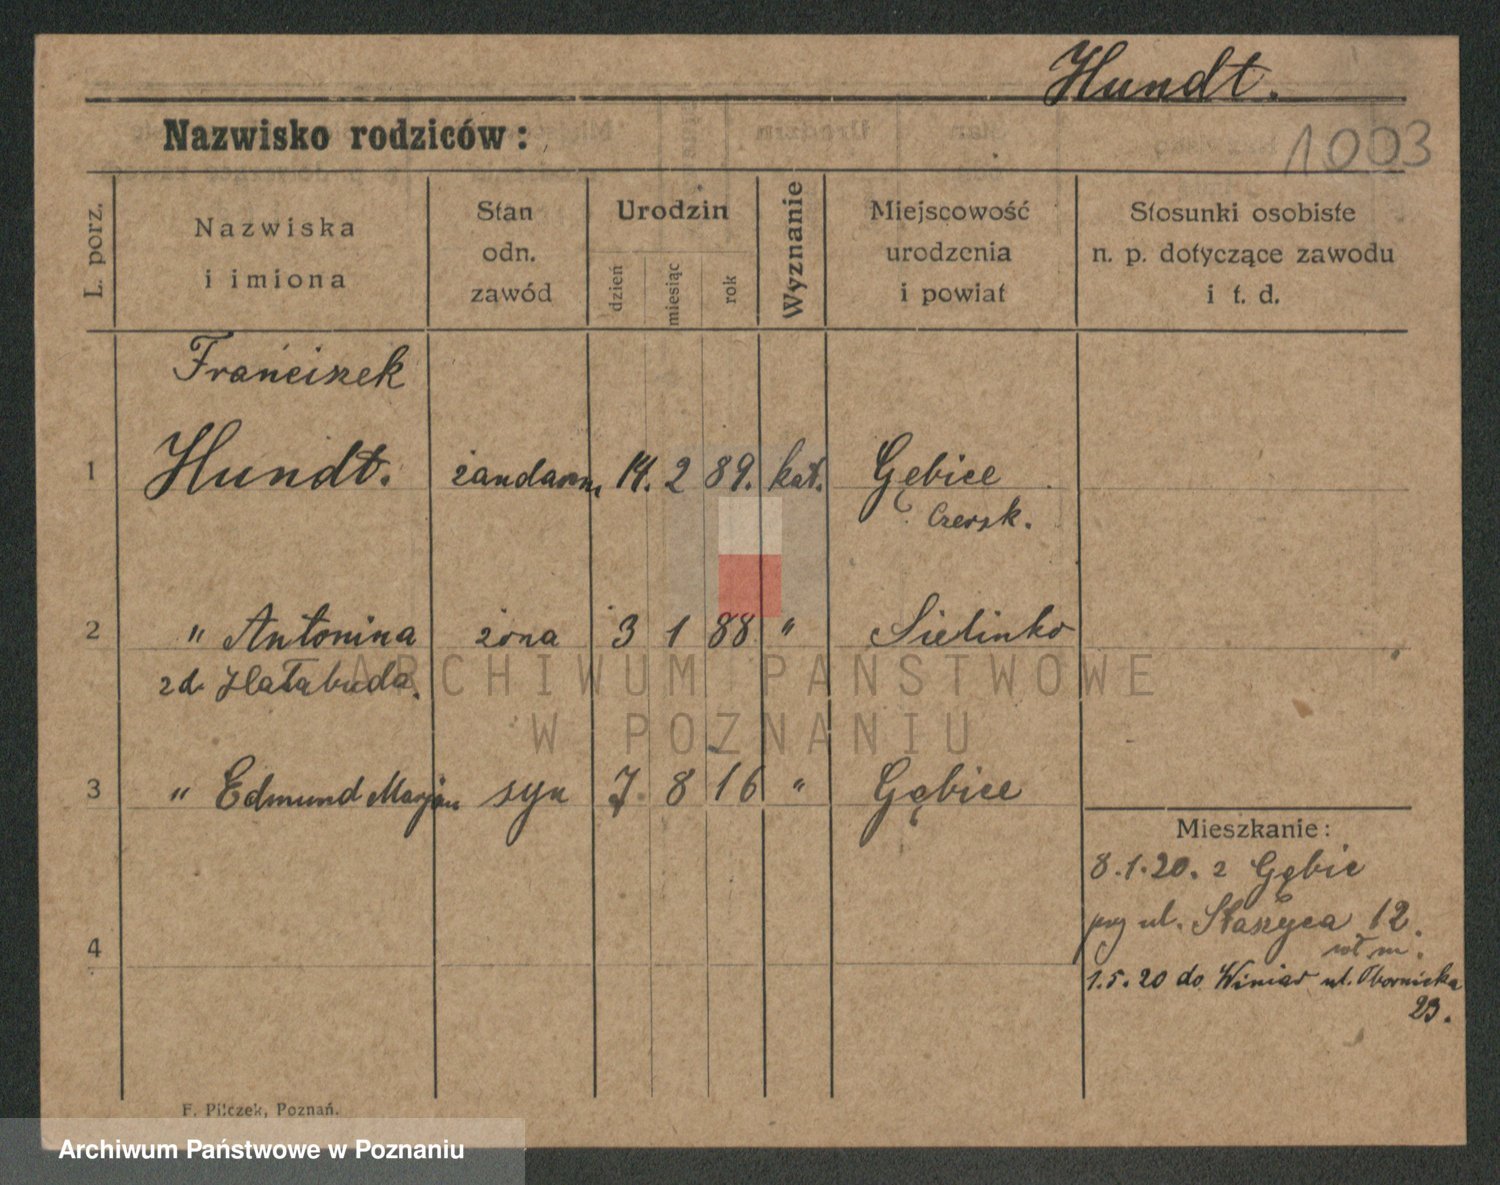 Hundt.
1003
Nazwisko rodziców:
L. porz.
Nazwiska
i imiona
Stan
odn.
zawód
Urodzin
dzień
miesiąc
rok
Wyznanie
Miejscowość
urodzenia
i powiat
Stosunki osobiste
n. p. dotyczące zawodu
i t. d.
Franciszek
1 Hundt. żandarm. 14. 2 89. kat. Gębice
Czersk.
2 " Antonina żona 3 1 88 " Sielinko
zd. Hałabuda.
ARCHIWUM PAŃSTWOWE
W POZNANIU
3 " Edmund Marjan syn 7 8 16 " Gębice
Mieszkanie:
8.1.20. z Gębic
przy ul. Staszyca 12.
m.
1.5.20 do Winiar ul. Obornicka
23.
4
F. Pilczek, Poznań.
Archiwum Państwowe w Poznaniu